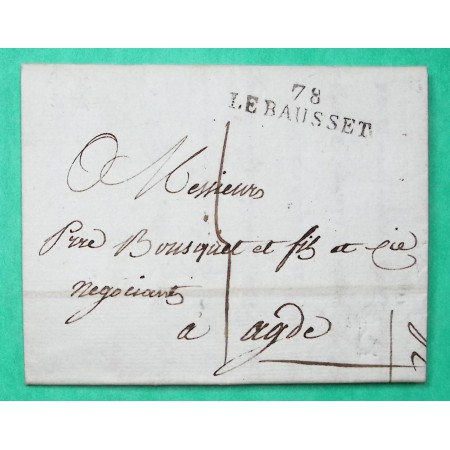 78
LE BAUSSET
A Messieurs
Prre Bousquet et fils et Cie
negociants
a agde